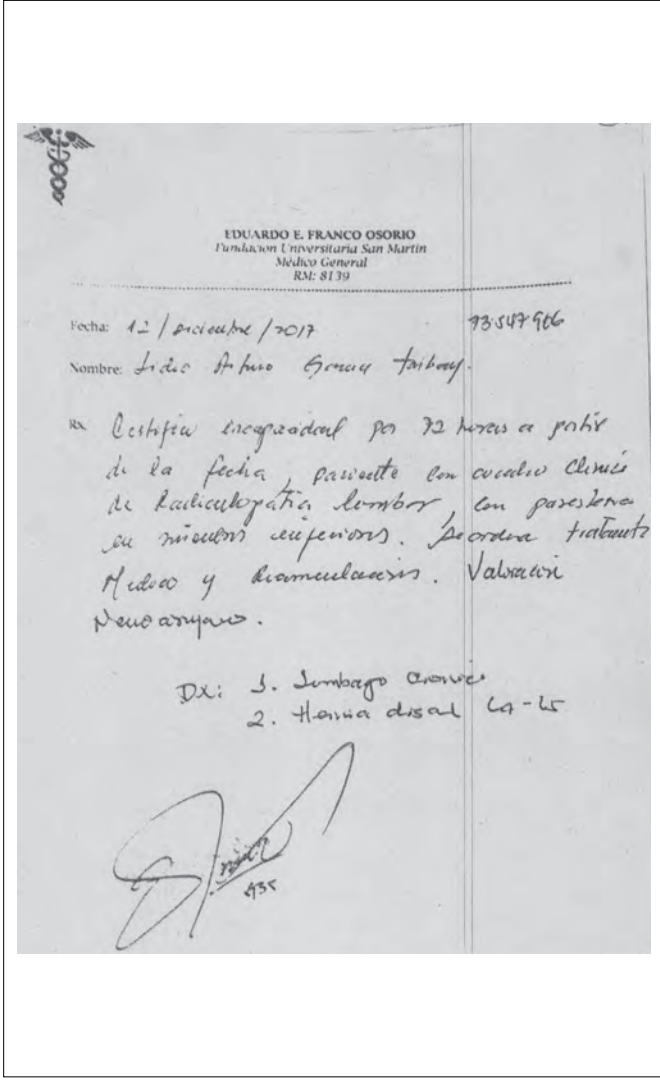 EDUARDO E. FRANCO OSORIO
Fundacion Universitaria San Martin
Médico General
RM: 8139
Fecha: 12 / diciembre / 2017 73.547.906
Nombre: Lidio Arturo Garcia
Rx Certifico incapacidad por 72 horas a partir
de la fecha, paciente con cuadro clinico
de Radiculopatia lumbar, con parestesia
en miembros inferiores. Se ordena tratamiento
Medico y . Valoracion
Neurocirujano.
DX: 1. Lumbago cronico
2. Hernia discal L4-L5